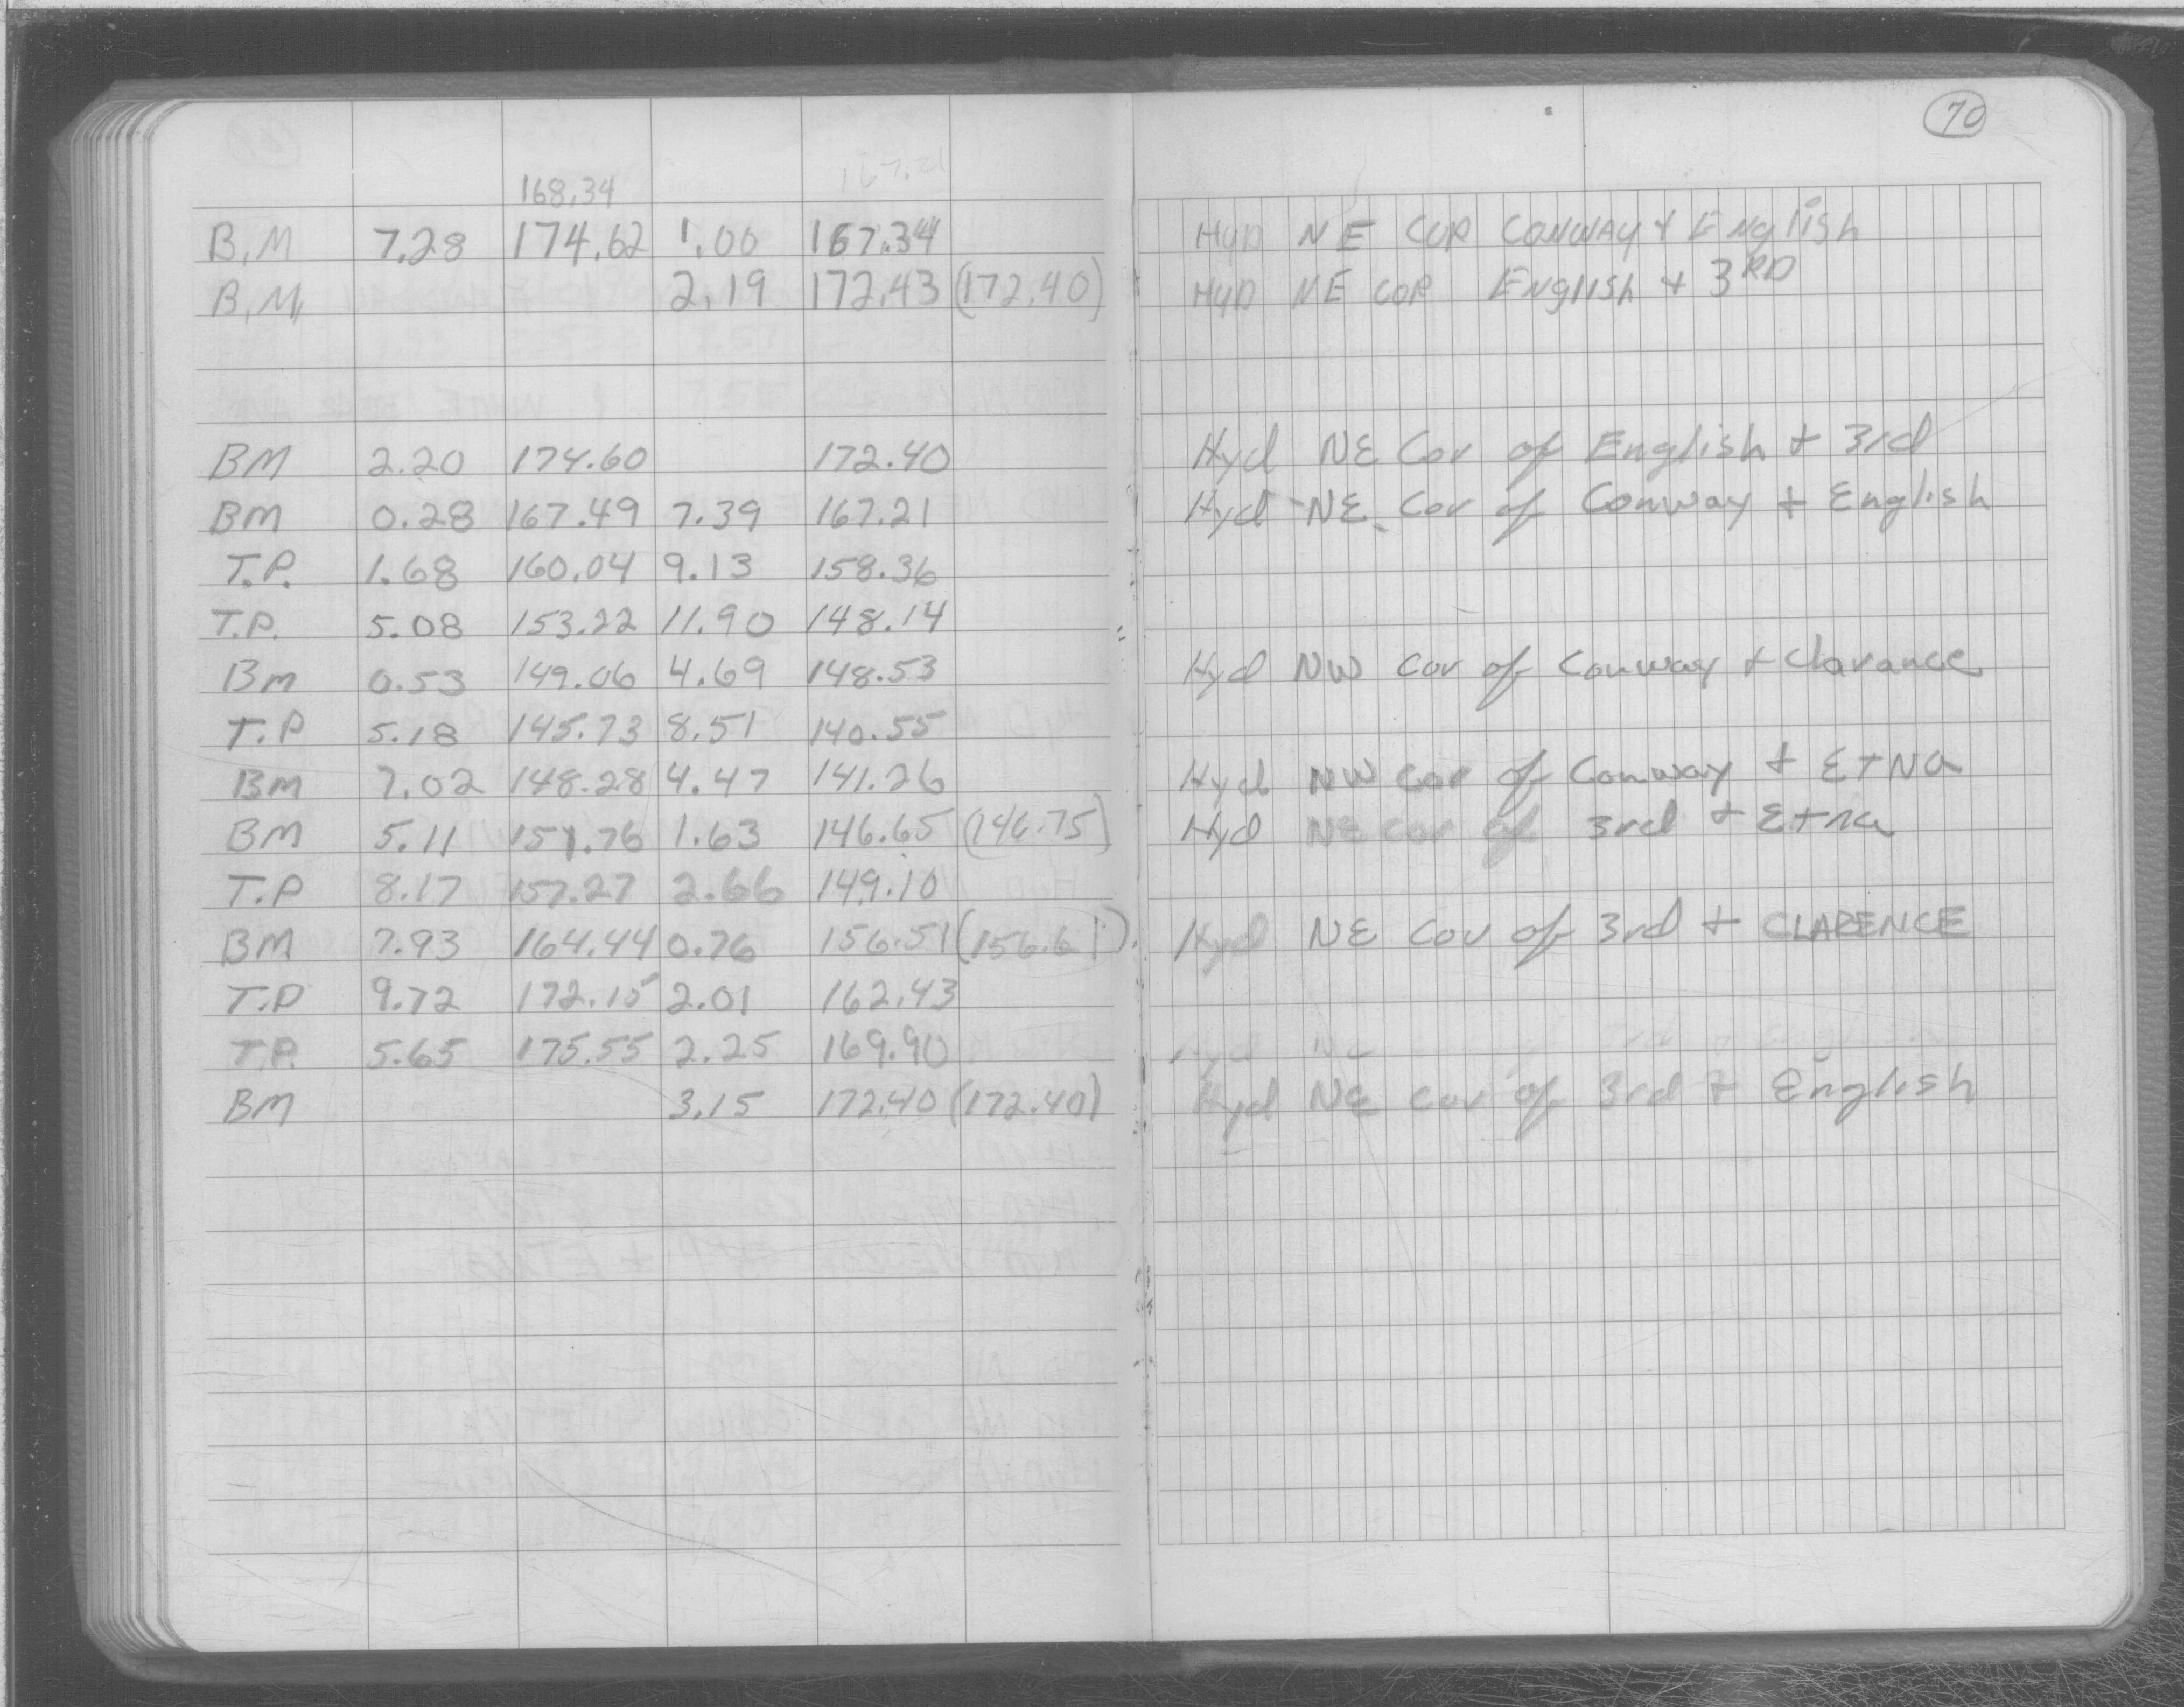 70
168.34 167.21
B.M 7.28 174.62 1.00 167.34 HYD NE COR CONWAY + ENglish
B.M. 2.19 172.43 (172.40) HYD NE COR ENglisH + 3RD
BM 2.20 174.60 172.40 Hyd NE Cor of English + 3rd
BM 0.28 167.49 7.39 167.21 Hyd NE Cor of Conway + English
T.P. 1.68 160.04 9.13 158.36
T.P. 5.08 153.22 11.90 148.14
BM 0.53 149.06 4.69 148.53 Hyd NW Cor of Conway + Clarance
T.P 5.18 145.73 8.51 140.55
BM 7.02 148.28 4.47 141.26 Hyd NW Cor of Conway + EtNa
BM 5.11 151.76 1.63 146.65 (146.75) Hyd NE Cor of 3rd + Etna
T.P 8.17 157.27 2.66 149.10
BM 7.93 164.44 0.76 156.51 (156.61) Hyd NE Cor of 3rd + CLARENCE
T.P 9.72 172.15 2.01 162.43
T.P. 5.65 175.55 2.25 169.90
BM 3.15 172.40 (172.40) Hyd NE Cor of 3rd + English